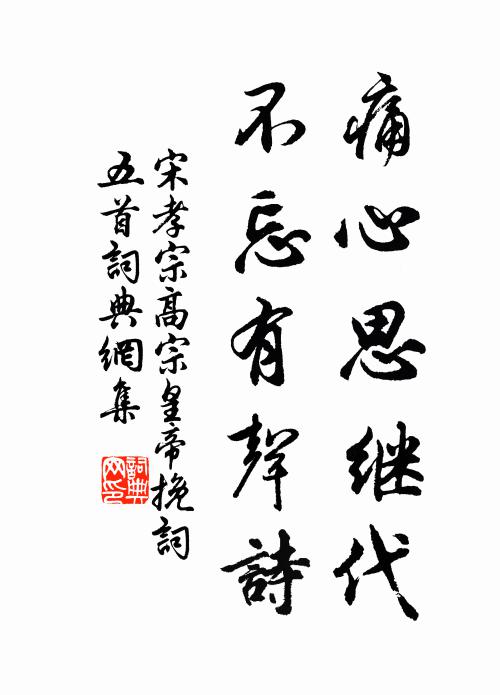 痛心思继代
不忘有聲詩
宋孝宗高宗皇帝挽詞
五首詞典網集
詞典
网印